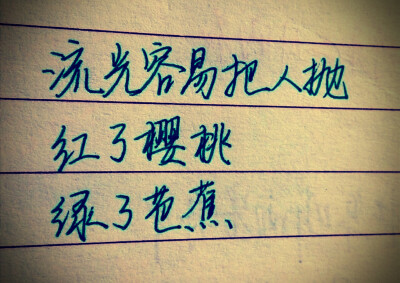 流光容易把人抛
红了樱桃
绿了芭蕉